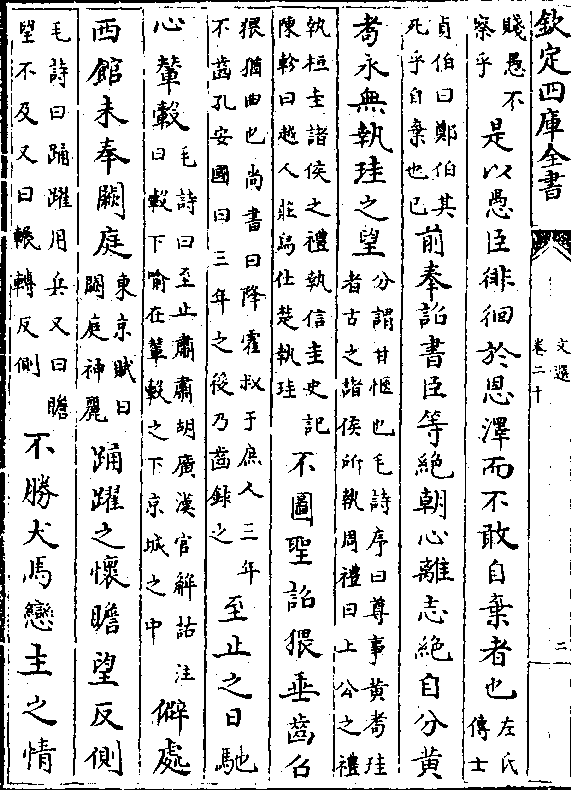 欽定四庫全書
文選
卷二十
二
賤愚不察乎是以愚臣徘徊於恩澤而不敢自棄者也左氏傳士
貞伯曰鄭伯其死乎自棄也已前奉詔書臣等絶朝心離志絶自分黄
耉永無執珪之望分謂甘愜也毛詩序曰尊事黄耉珪者古之諸侯所執周禮曰上公之禮
執桓圭諸侯之禮執信圭史記陳軫曰越人莊舄仕楚執珪不圖聖詔猥垂齒召
猥猶曲也尚書曰降霍叔于庶人三年不齒孔安國曰三年之後乃齒錄之至止之日馳
心輦轂毛詩曰至止肅肅胡廣漢官解詁注曰轂下喻在輦轂之下京城之中僻處
西館未奉闕庭東京賦曰闕庭神麗踊躍之懷瞻望反側
毛詩曰踊躍用兵又曰瞻望不及又曰輾轉反側不勝犬馬戀主之情